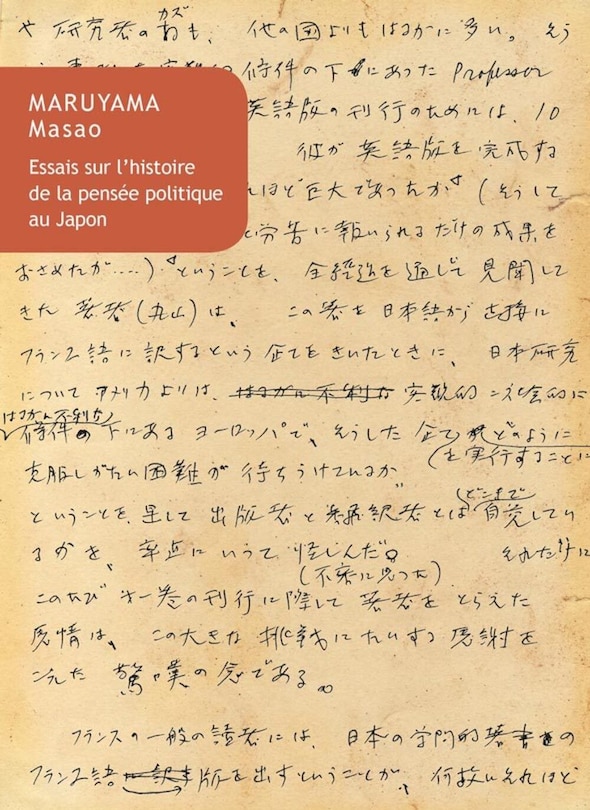 カズ
や研究者の も、他の国よりもはるかに多い。そう
MARUYAMA
Masao
Essais sur l'histoire
de la pensée politique
au Japon
条件の下にあった Professor
英語版の刊行のためには、10
彼が英語版を完成する
ほど巨大であったか(そうして
労苦に報いられるだけの成果を
おさめたが……)ということを、全経過を通じて見聞して
きた著者(丸山)は、この著を日本語から直接に
フランス語に訳するという企てをきいたときに、日本研究
についてアメリカよりは、はるかに不利な客観的=社会的に
はるかに不利な
条件の下にあるヨーロッパで、そうした企てどのように
(を実行することに
克服しがたい困難が待ちうけているか
(どこまで
ということを、果して出版者と翻訳者とは自覚してい
るかを、率直にいって怪しんだ。それだけに
(不安に思った)
このたび第一巻の刊行に際して著者をとらえた
感情は、この大きな挑戦にたいする感謝を
こえた驚嘆の念である。
フランスの一般の読者には、日本の学問的著書の
フランス語版を出すということが、何故にそれほど